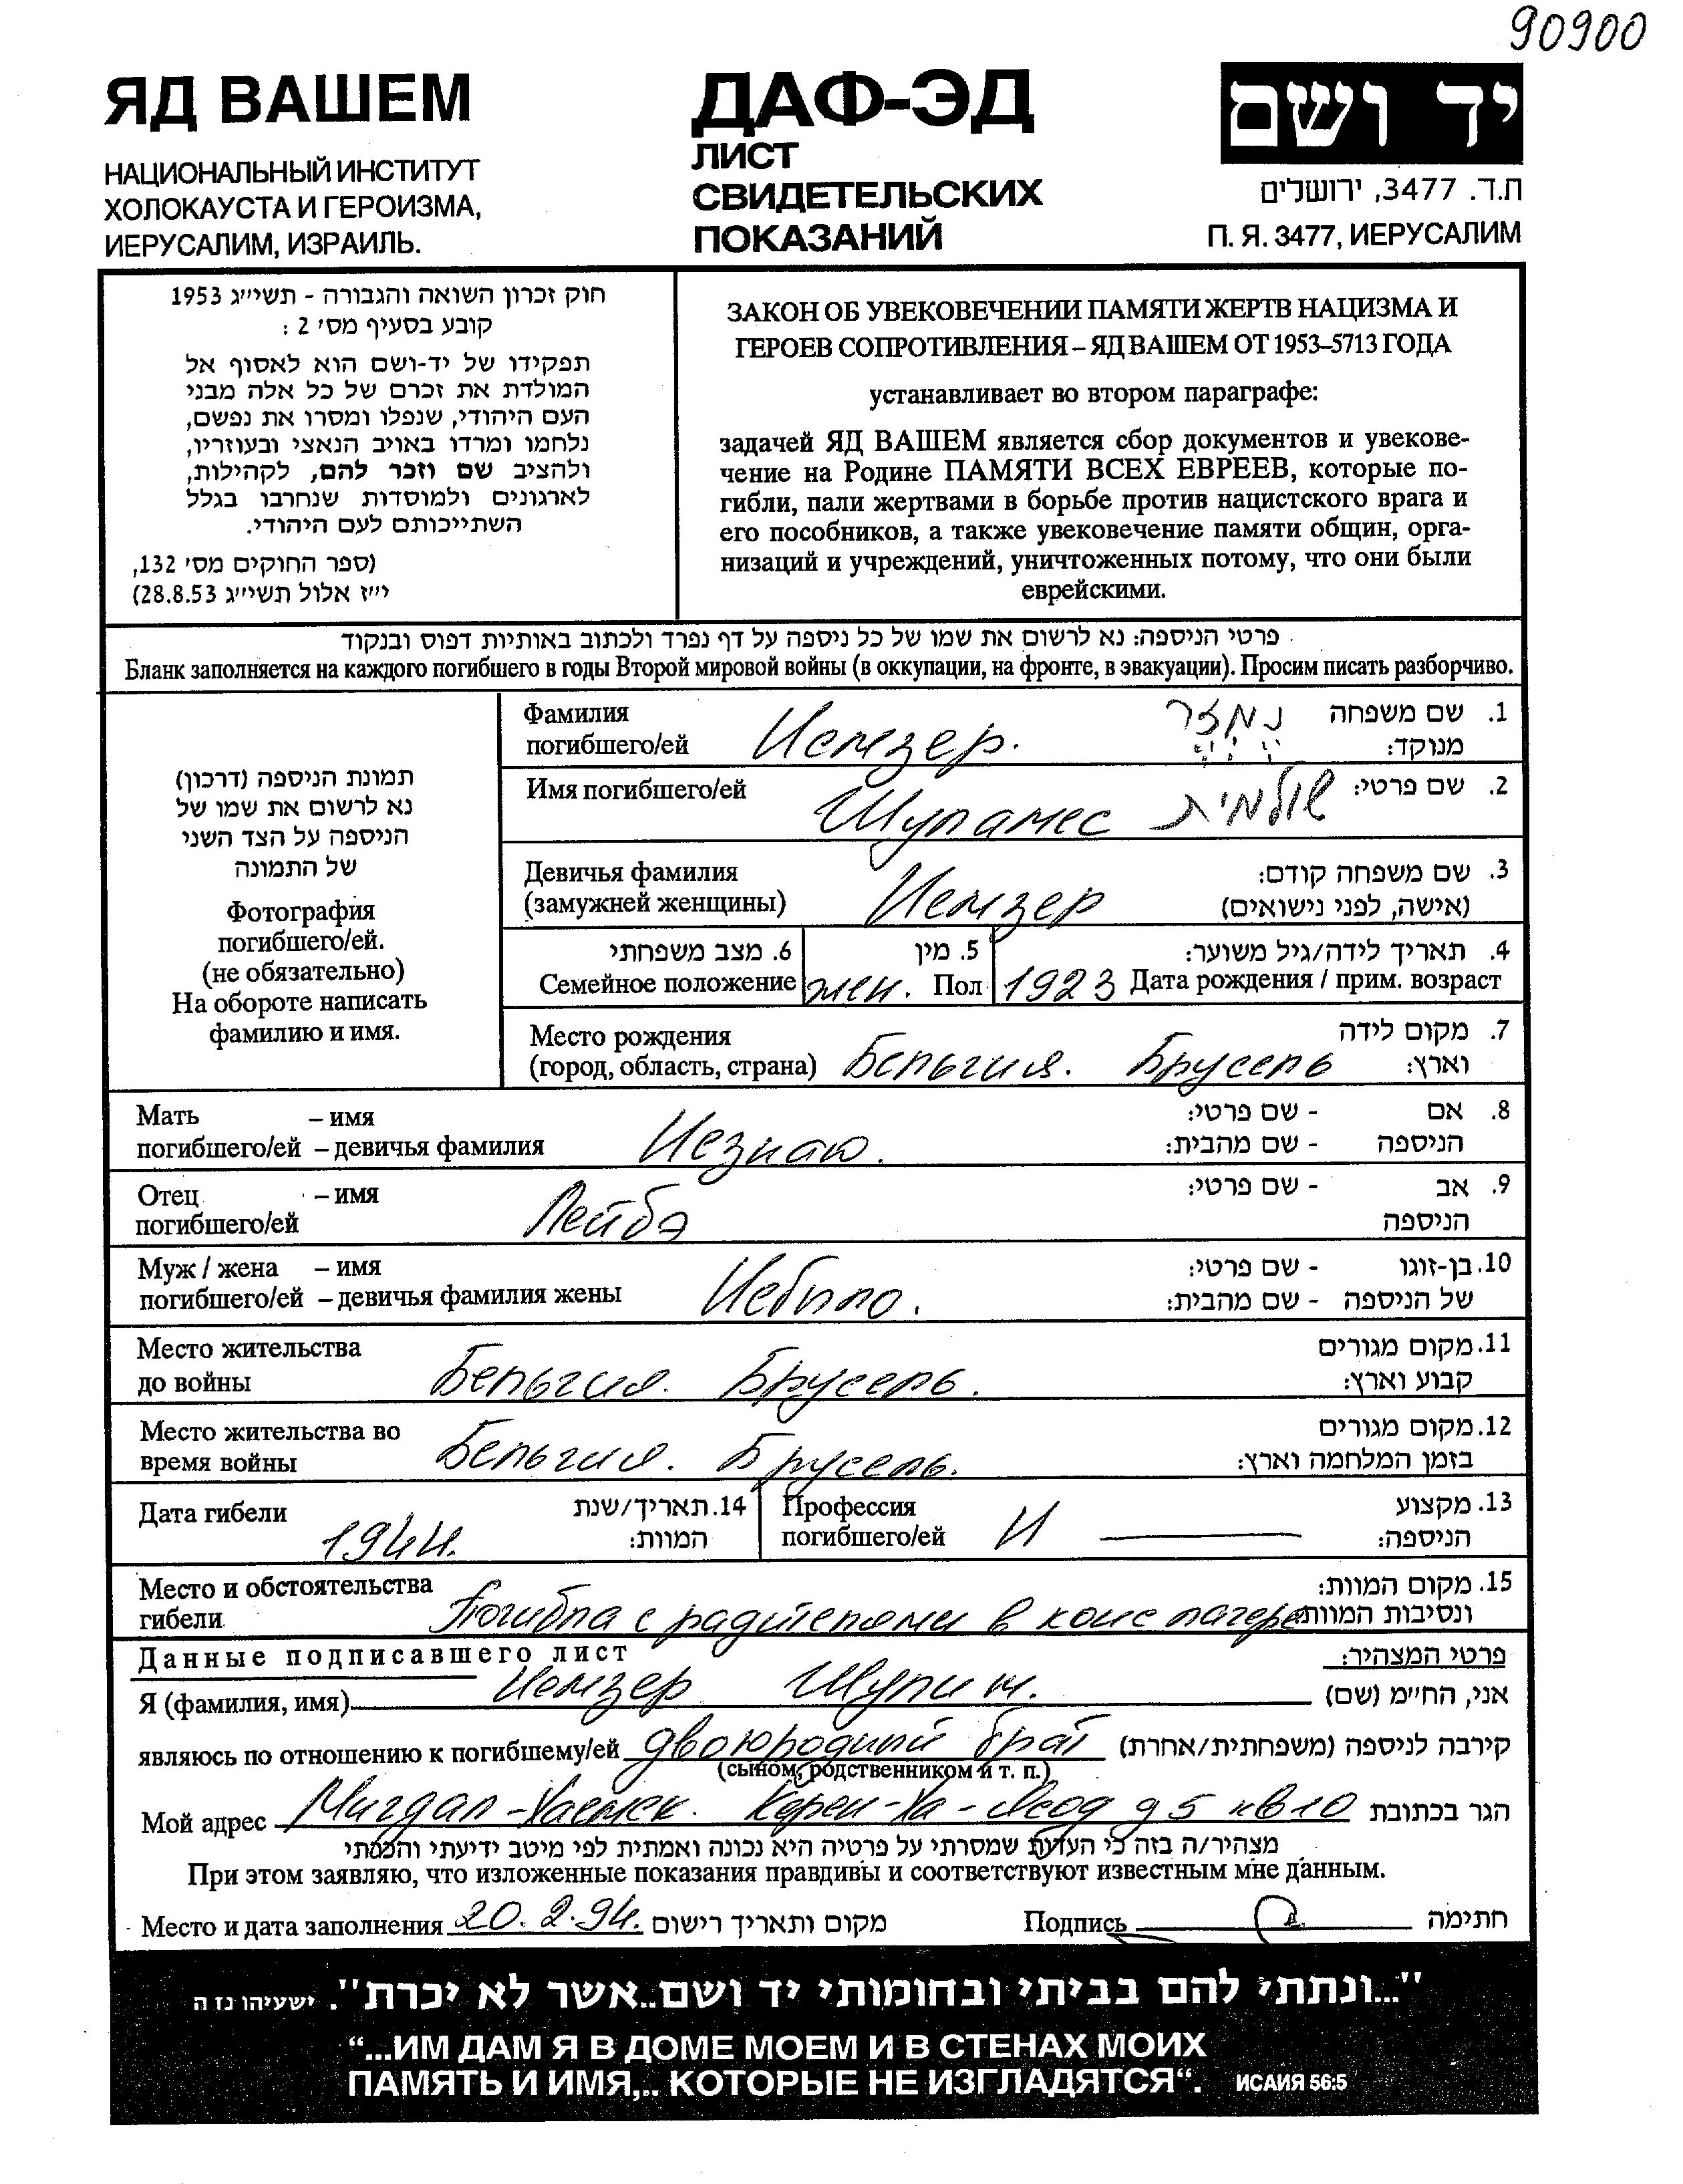 90900
ЯД ВАШЕМ
НАЦИОНАЛЬНЫЙ ИНСТИТУТ
ХОЛОКАУСТА И ГЕРОИЗМА,
ИЕРУСАЛИМ, ИЗРАИЛЬ.
ДАФ-ЭД
ЛИСТ
СВИДЕТЕЛЬСКИХ
ПОКАЗАНИЙ
יד ושם
ת.ד. 3477, ירושלים
П. Я. 3477, ИЕРУСАЛИМ
חוק זכרון השואה והגבורה - תשי״ג 1953
קובע בסעיף מס׳ 2 :
תפקידו של יד-ושם הוא לאסוף אל
המולדת את זכרם של כל אלה מבני
העם היהודי, שנפלו ומסרו את נפשם,
נלחמו ומרדו באויב הנאצי ובעוזריו,
ולהציב שם וזכר להם, לקהילות,
לארגונים ולמוסדות שנחרבו בגלל
השתייכותם לעם היהודי.
(ספר החוקים מס׳ 132,
י״ז אלול תשי״ג 28.8.53)
ЗАКОН ОБ УВЕКОВЕЧЕНИИ ПАМЯТИ ЖЕРТВ НАЦИЗМА И
ГЕРОЕВ СОПРОТИВЛЕНИЯ – ЯД ВАШЕМ ОТ 1953–5713 ГОДА
устанавливает во втором параграфе:
задачей ЯД ВАШЕМ является сбор документов и увекове-
чение на Родине ПАМЯТИ ВСЕХ ЕВРЕЕВ, которые по-
гибли, пали жертвами в борьбе против нацистского врага и
его пособников, а также увековечение памяти общин, орга-
низаций и учреждений, уничтоженных потому, что они были
еврейскими.
פרטי הניספה: נא לרשום את שמו של כל ניספה על דף נפרד ולכתוב באותיות דפוס ובנקוד
Бланк заполняется на каждого погибшего в годы Второй мировой войны (в оккупации, на фронте, в эвакуации). Просим писать разборчиво.
תמונת הניספה (דרכון)
נא לרשום את שמו של
הניספה על הצד השני
של התמונה
Фотография
погибшего/ей.
(не обязательно)
На обороте написать
фамилию и имя.
Фамилия נמזר 1. שם משפחה
погибшего/ей Немзер. מנוקד:
Имя погибшего/ей Шуламес שולמית 2. שם פרטי:
Девичья фамилия 3. שם משפחה קודם:
(замужней женщины) Немзер (אישה, לפני נישואים)
6. מצב משפחתי 5. מין 4. תאריך לידה/גיל משוער:
Семейное положение жен. Пол 1923 Дата рождения / прим. возраст
Место рождения 7. מקום לידה
(город, область, страна) Бельгия. Брусель וארץ:
Мать – имя - שם פרטי: 8. אם
погибшего/ей – девичья фамилия Незнаю. - שם מהבית: הניספה
Отец – имя Лейбэ - שם פרטי: 9. אב
погибшего/ей הניספה
Муж / жена – имя - שם פרטי: 10. בן-זוגו
погибшего/ей – девичья фамилия жены Небыло. - שם מהבית: של הניספה
Место жительства 11. מקום מגורים
до войны Бельгия. Брусель. קבוע וארץ:
Место жительства во 12. מקום מגורים
время войны Бельгия. Брусель. בזמן המלחמה וארץ:
Дата гибели 14. תאריך/שנת Профессия 13. מקצוע
1944. המוות: погибшего/ей Н — הניספה:
Место и обстоятельства 15. מקום המוות:
гибели Погибла с радителями в конс лагере ונסיבות המוות:
Данные подписавшего лист פרטי המצהיר:
Я (фамилия, имя) Немзер Шулим. אני, החי״מ (שם)
являюсь по отношению к погибшему/ей двоюродный брат קירבה לניספה (משפחתית/אחרת)
(сыном, родственником и т. п.)
Мой адрес Мигдал-Хаемек. Керен-Ха-Йесод д 5 кв 10 הגר בכתובת
מצהיר/ה בזה כי העדות שמסרתי על פרטיה היא נכונה ואמתית לפי מיטב ידיעתי והכרתי
При этом заявляю, что изложенные показания правдивы и соответствуют известным мне данным.
Место и дата заполнения 20.2.94. מקום ותאריך רישום Подпись חתימה
"...ונתתי להם בביתי ובחומותי יד ושם..אשר לא יכרת". ישעיהו נז ה
“...ИМ ДАМ Я В ДОМЕ МОЕМ И В СТЕНАХ МОИХ
ПАМЯТЬ И ИМЯ,.. КОТОРЫЕ НЕ ИЗГЛАДЯТСЯ“. ИСАИЯ 56:5